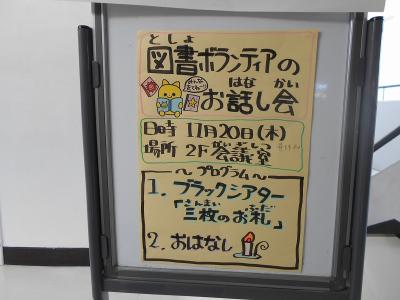 としょ
図書ボランティアの
はな かい
お話し会
日時 11月20日(木)
場所 2F 会議室
～プログラム～
1. ブラックシアター
さんまい ふだ
「三枚のお札」
2. おはなし